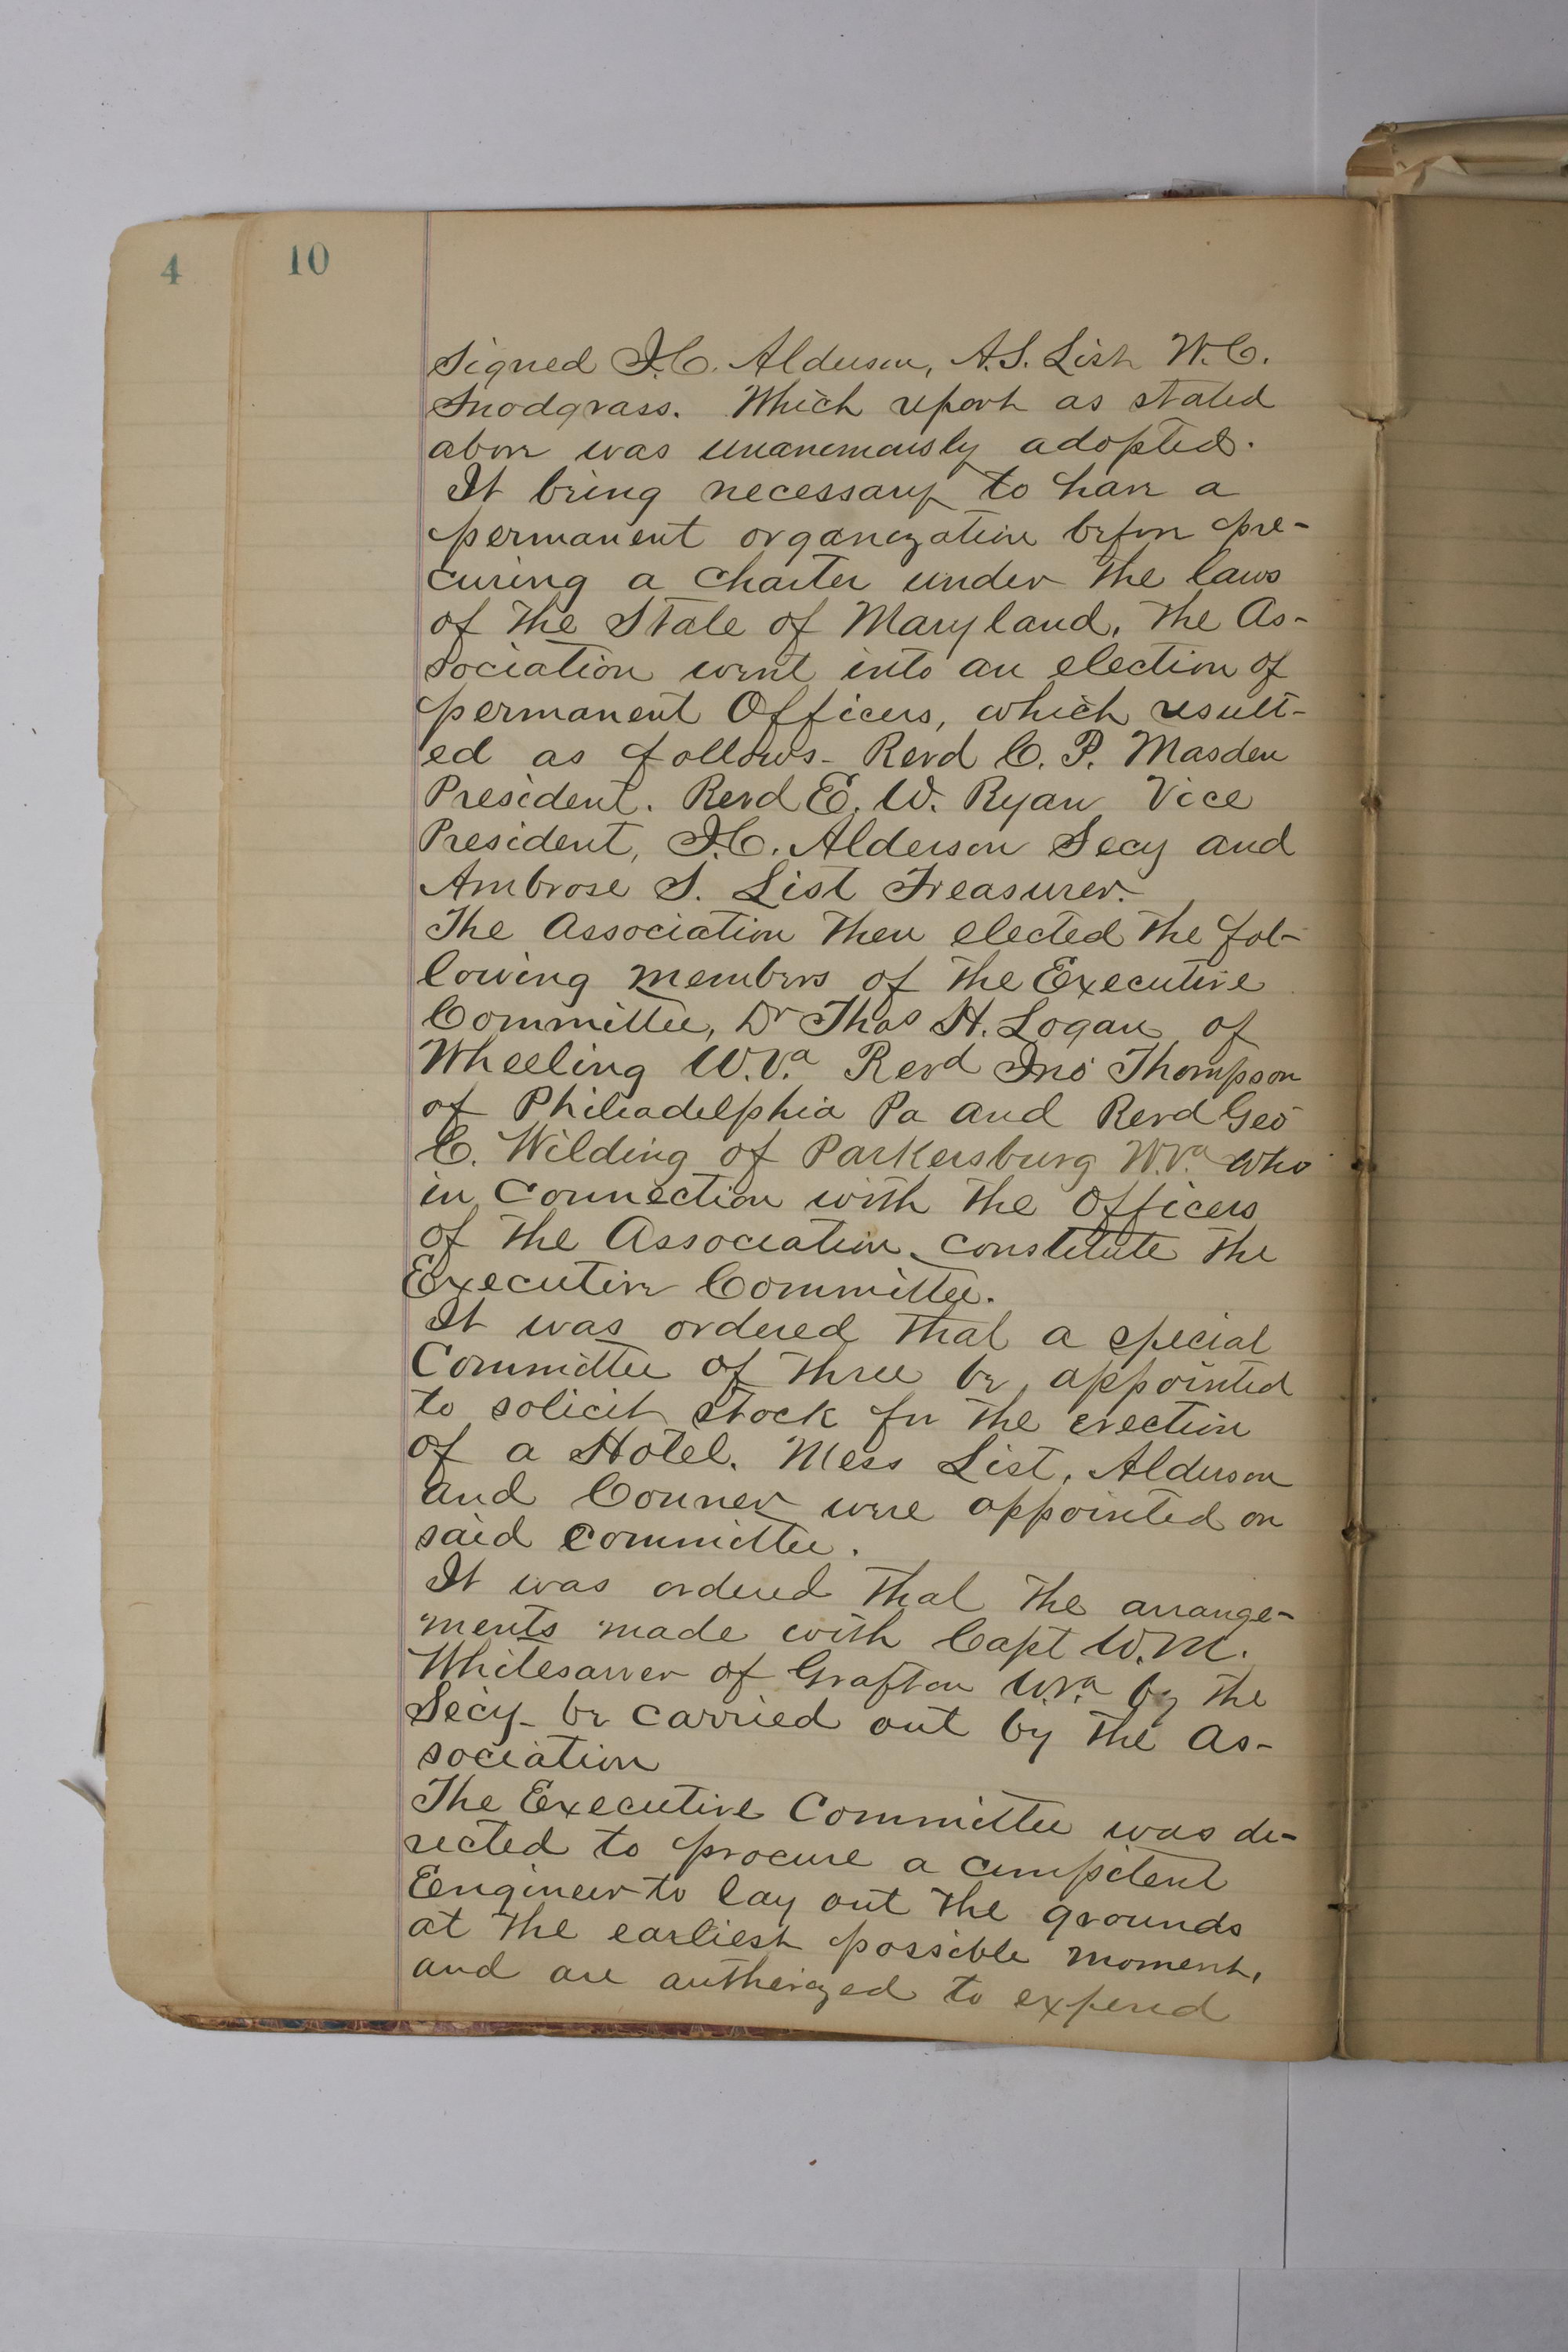 4
10
Signed J.C. Alderson, A.S. List W.C.
Snodgrass. Which report as stated
above was unanimously adopted.
It being necessary to have a
permanent organization before pro-
curing a charter under the laws
of the State of Maryland, the As-
sociation went into an election of
permanent Officers, which result-
ed as follows - Revd C. P. Masden
President. Revd E. W. Ryan Vice
President, J.C. Alderson Secy and
Ambrose S. List Treasurer.
The Association then elected the fol-
lowing members of the Executive
Committee, Dr Thos H. Logan of
Wheeling W.Va. Revd Jno Thompson
of Phileadelphia Pa and Revd Geo
C. Wilding of Parkersburg W.Va. who
in connection with the Officers
of the Association constitute the
Executive Committee.
It was ordered that a special
Committee of three be appointed
to solicit stock for the erection
of a Hotel. Mess List, Alderson
and Conner were appointed on
said committee.
It was ordered that the arrange-
ments made with Capt W.M.
Whitesarver of Grafton W.Va. by the
Secy - be carried out by the As-
sociation
The Executive Committee was di-
rected to procure a competent
Eengineer to lay out the grounds
at the earliest possible moment,
and are autherized to expend